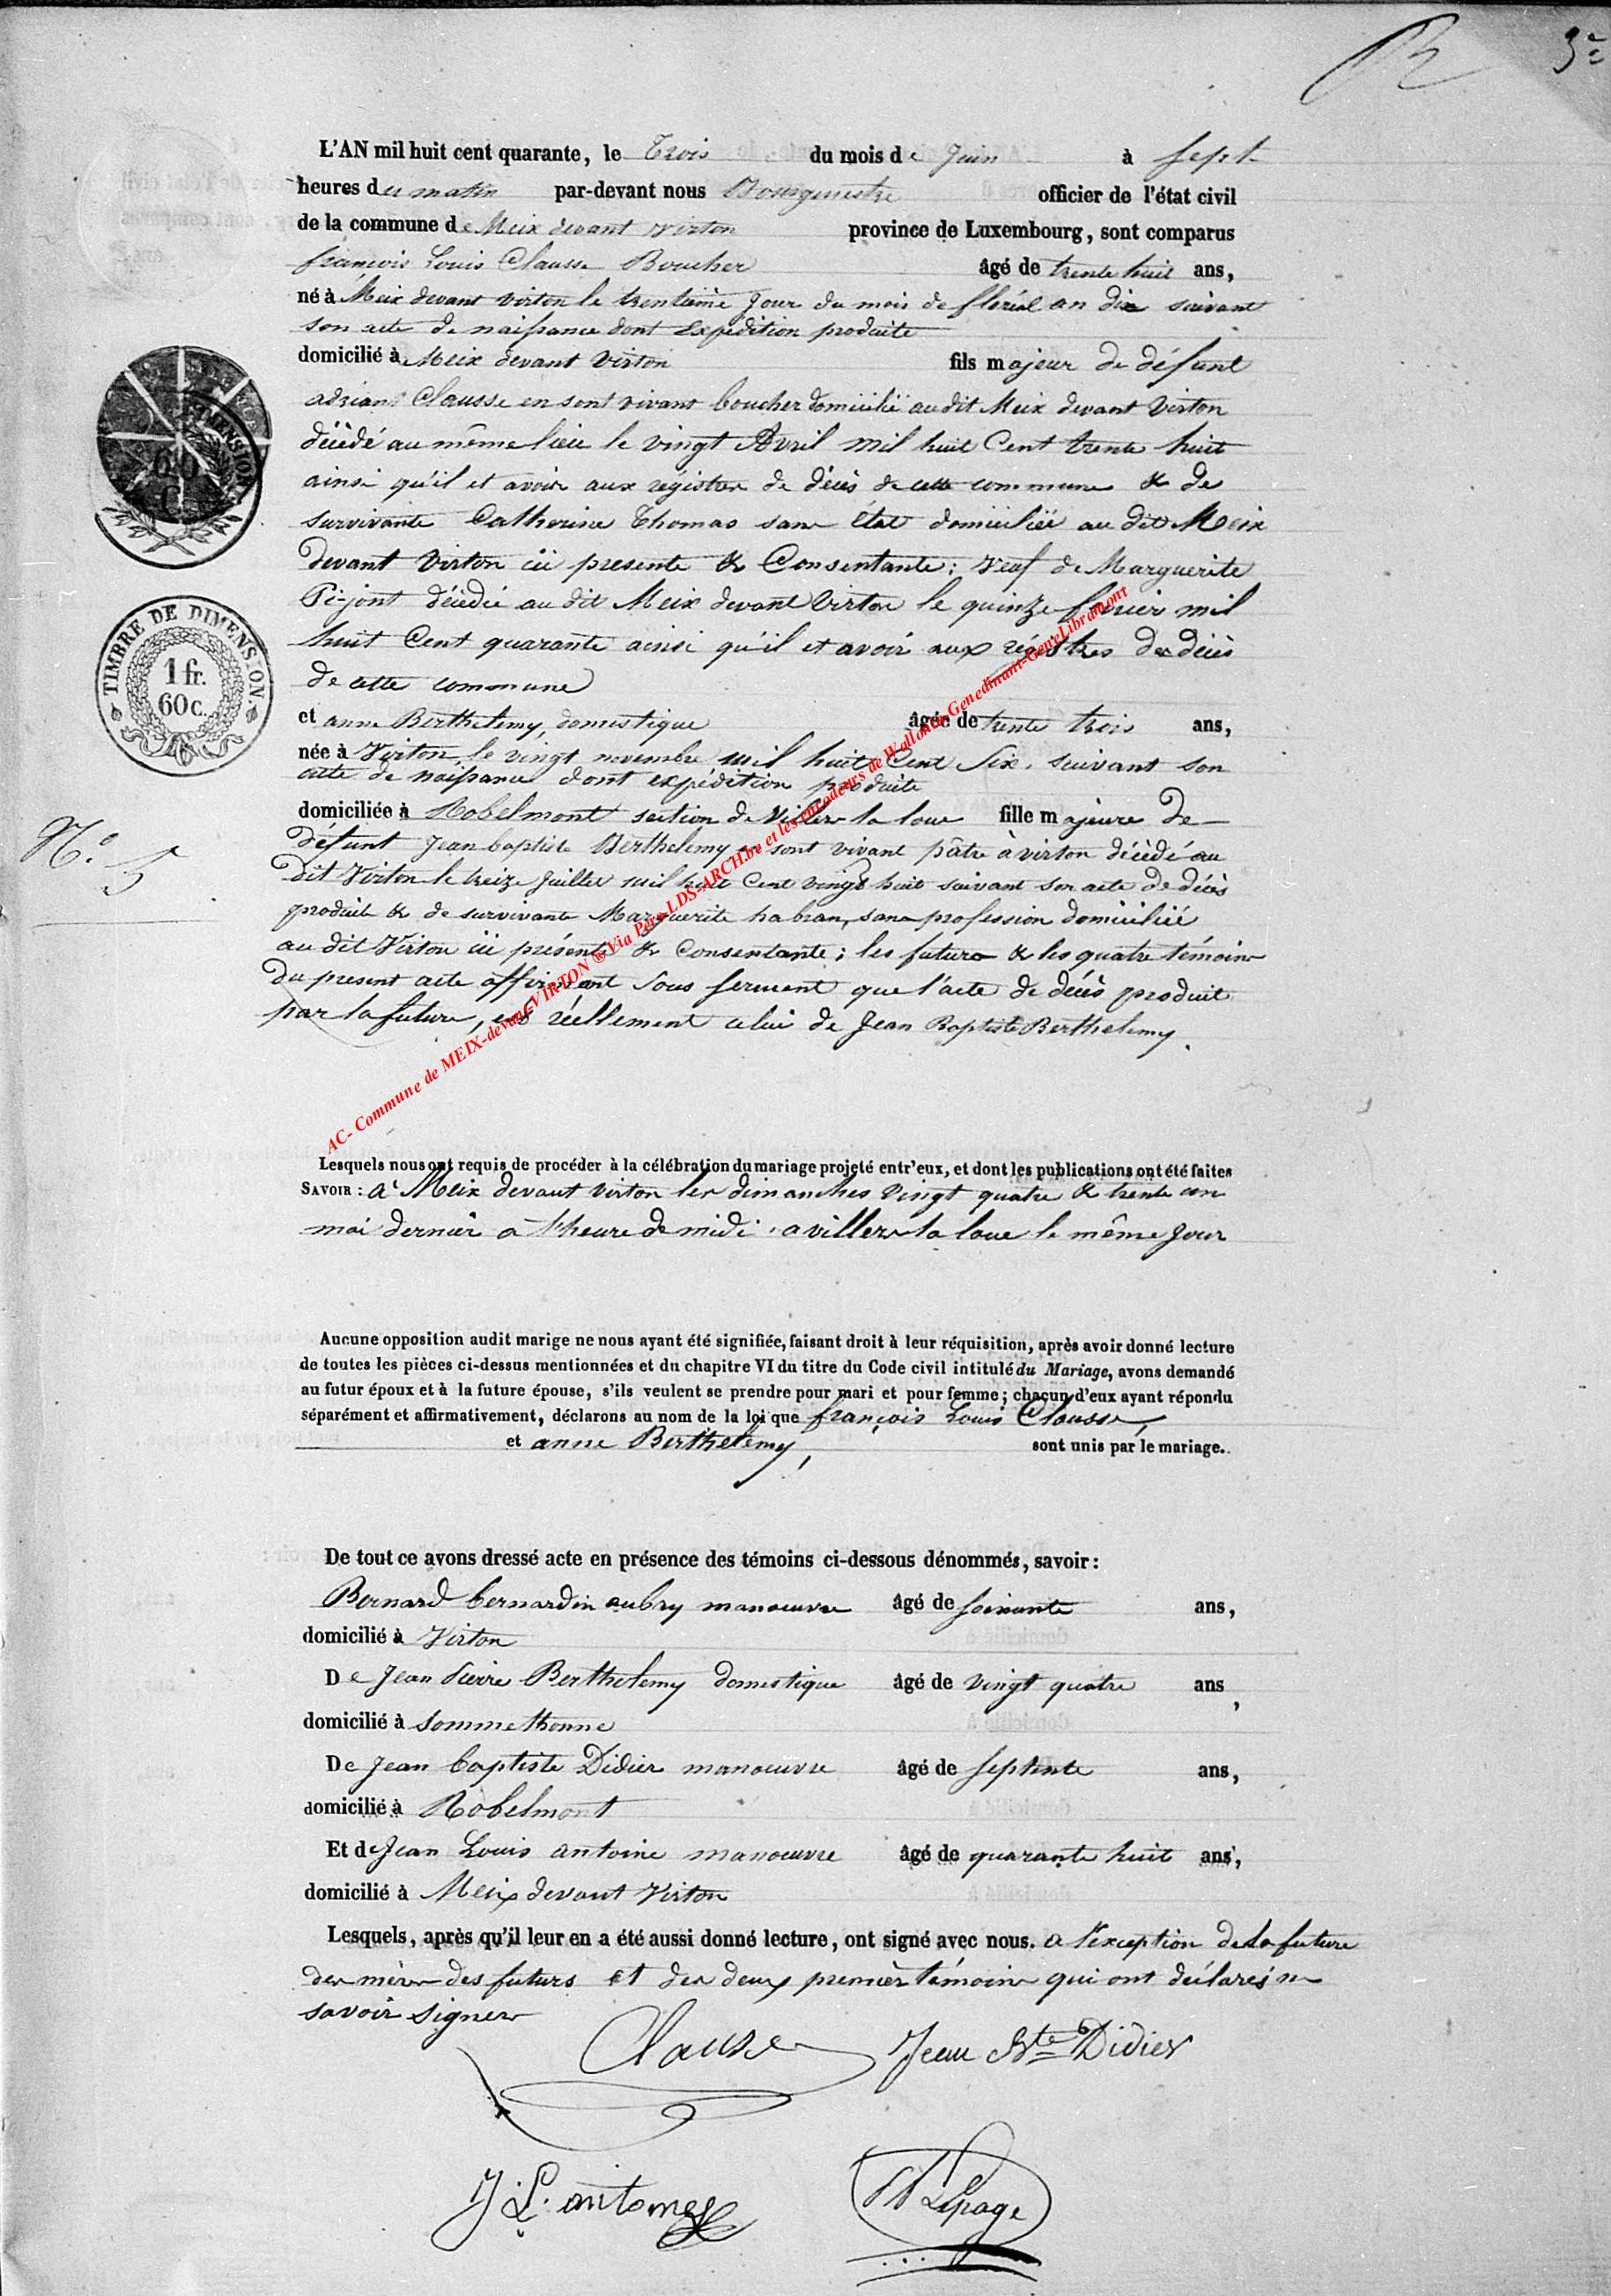 R 3e
L'AN mil huit cent quarante, le Trois du mois de Juin à sept
heures du matin par-devant nous Bourguestre officier de l'état civil
de la commune de Meix devant Virton province de Luxembourg, sont comparus
françois Louis Clausse Boucher âgé de trente huit ans,
né à Meix devant virton le trentaine Jour du mois de floréal an dix suivant
son acte de naissance dont Expédition produite
domicilié à Meix devant Virton fils majeur de défunt
adrian Clausse en sont vivant boucher domicilié audit Meix devant Virton
décédé au même lieu le vingt Avril mil huit Cent trente huit
ainsi qu'il et avoir aux régistres de décès de cette commune & de
survivante Catherine Thomas sans État domiciliée au dit Meix
devant Virton ici presente & Consentante; veuf de Marguerite
Pi-jont décédée au dit Meix devant Virton le quinze fevrier mil
huit Cent quarante ainsi qu'il et avoir aux régistres de décès
de cette commune
et anne Berthelemy, domestique âgée de trente trois ans,
née à Virton, le vingt novembre mil huit Cent Six, suivant son
acte de naissance dont expédition produite
domiciliée à Robelmont section de Villers la loue fille majeure De
défunt Jean baptiste Berthelemy en sont vivant pâtre à virton décédé au
dit Virton le treize Juillet mil huit Cent vingt huit suivant son acte de décès
produit & de survivante Marguerite habran, sans profession domiciliée
au dit Virton ici présente & Consentante; les futurs & les quatre témoins
du present acte affirment sous serment que l'acte de décès produit
par la future, est réellement celui de Jean Baptiste Berthelemy.
N.o 5
TIMBRE DE DIMENSION
1 fr.
60 c.
AC- Commune de MEIX-devant-VIRTON ® Via Pero-LDS-ARCH.be et les encodeurs de Wallonia-Genedinant-GeneLibramont
Lesquels nous ont requis de procéder à la célébration du mariage projeté entr'eux, et dont les publications ont été faites
SAVOIR : à Meix devant virton les dimanches vingt quatre & trente un
mai dernier à l'heure de midi, a villers la loue le même Jour
Aucune opposition audit marige ne nous ayant été signifiée, faisant droit à leur réquisition, après avoir donné lecture
de toutes les pièces ci-dessus mentionnées et du chapitre VI du titre du Code civil intitulé du Mariage, avons demandé
au futur époux et à la future épouse, s'ils veulent se prendre pour mari et pour femme ; chacun d'eux ayant répondu
séparément et affirmativement, déclarons au nom de la loi que françois Louis Clausse,
et anne Berthelemy, sont unis par le mariage.
De tout ce avons dressé acte en présence des témoins ci-dessous dénommés, savoir :
Bernard bernardin aubry manoeuvre âgé de soixante ans,
domicilié à Virton
De Jean Pierre Berthelemy domestique âgé de vingt quatre ans,
domicilié à sommethonne
De Jean baptiste Didier manoeuvre âgé de septente ans,
domicilié à Robelmont
Et de Jean Louis antoine manoeuvre âgé de quarante huit ans,
domicilié à Meix devant Virton
Lesquels, après qu'il leur en a été aussi donné lecture, ont signé avec nous. a l'exception de la future
des mères des futurs et des deux premièr témoins qui ont déclarés ne
savoir signer
Clausse Jean Bte Didier
J. L. antoine Lepage